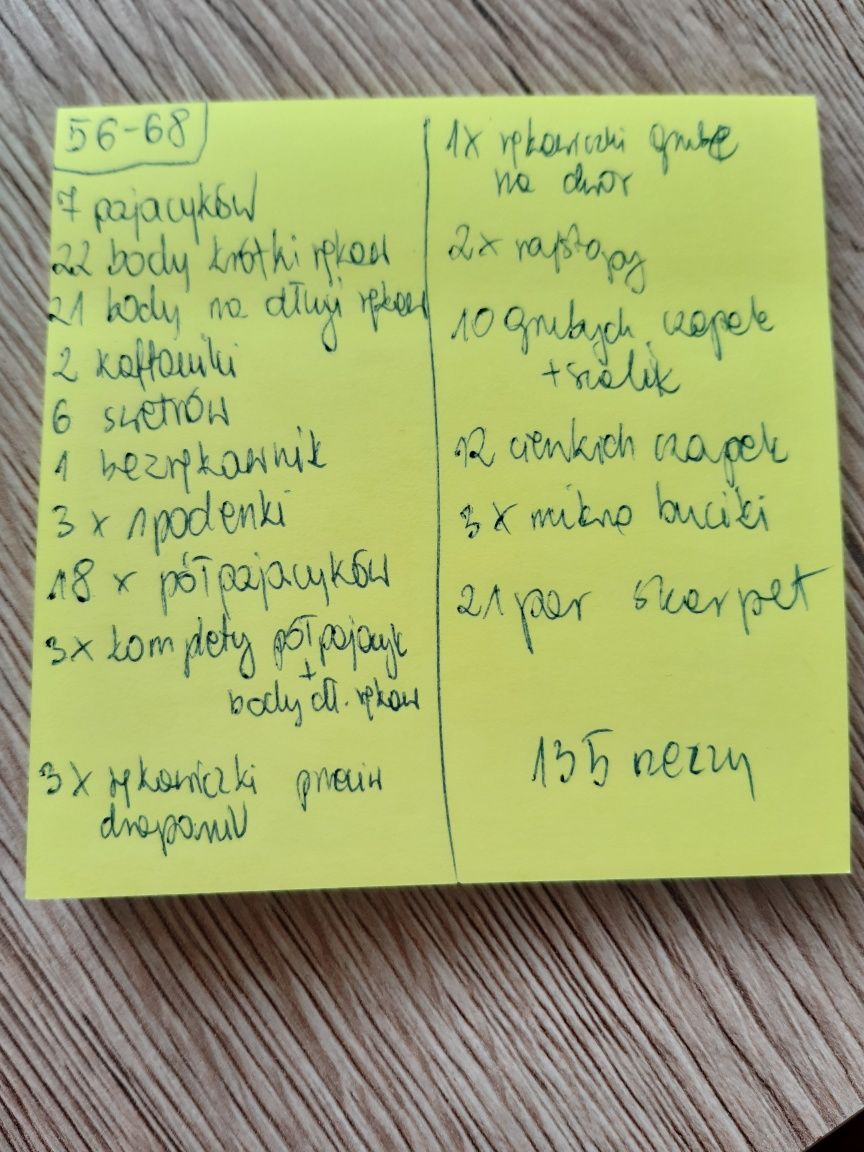 56-68
7 pajacyków
22 body krótki rękaw
21 body na długi rękaw
2 kaftaniki
6 swetrów
1 bezrękawnik
3 x spodenki
18 x półpajacyków
3x komplety półpajacyk
+
body dł. rękaw
3x rękawiczki przeciw
drapaniu
1x rękawiczki grube
na dwór
2x rajstopy
10 grubych czapek
+ szalik
12 cienkich czapek
3x mikro buciki
21 par skarpet
135 rzeczy